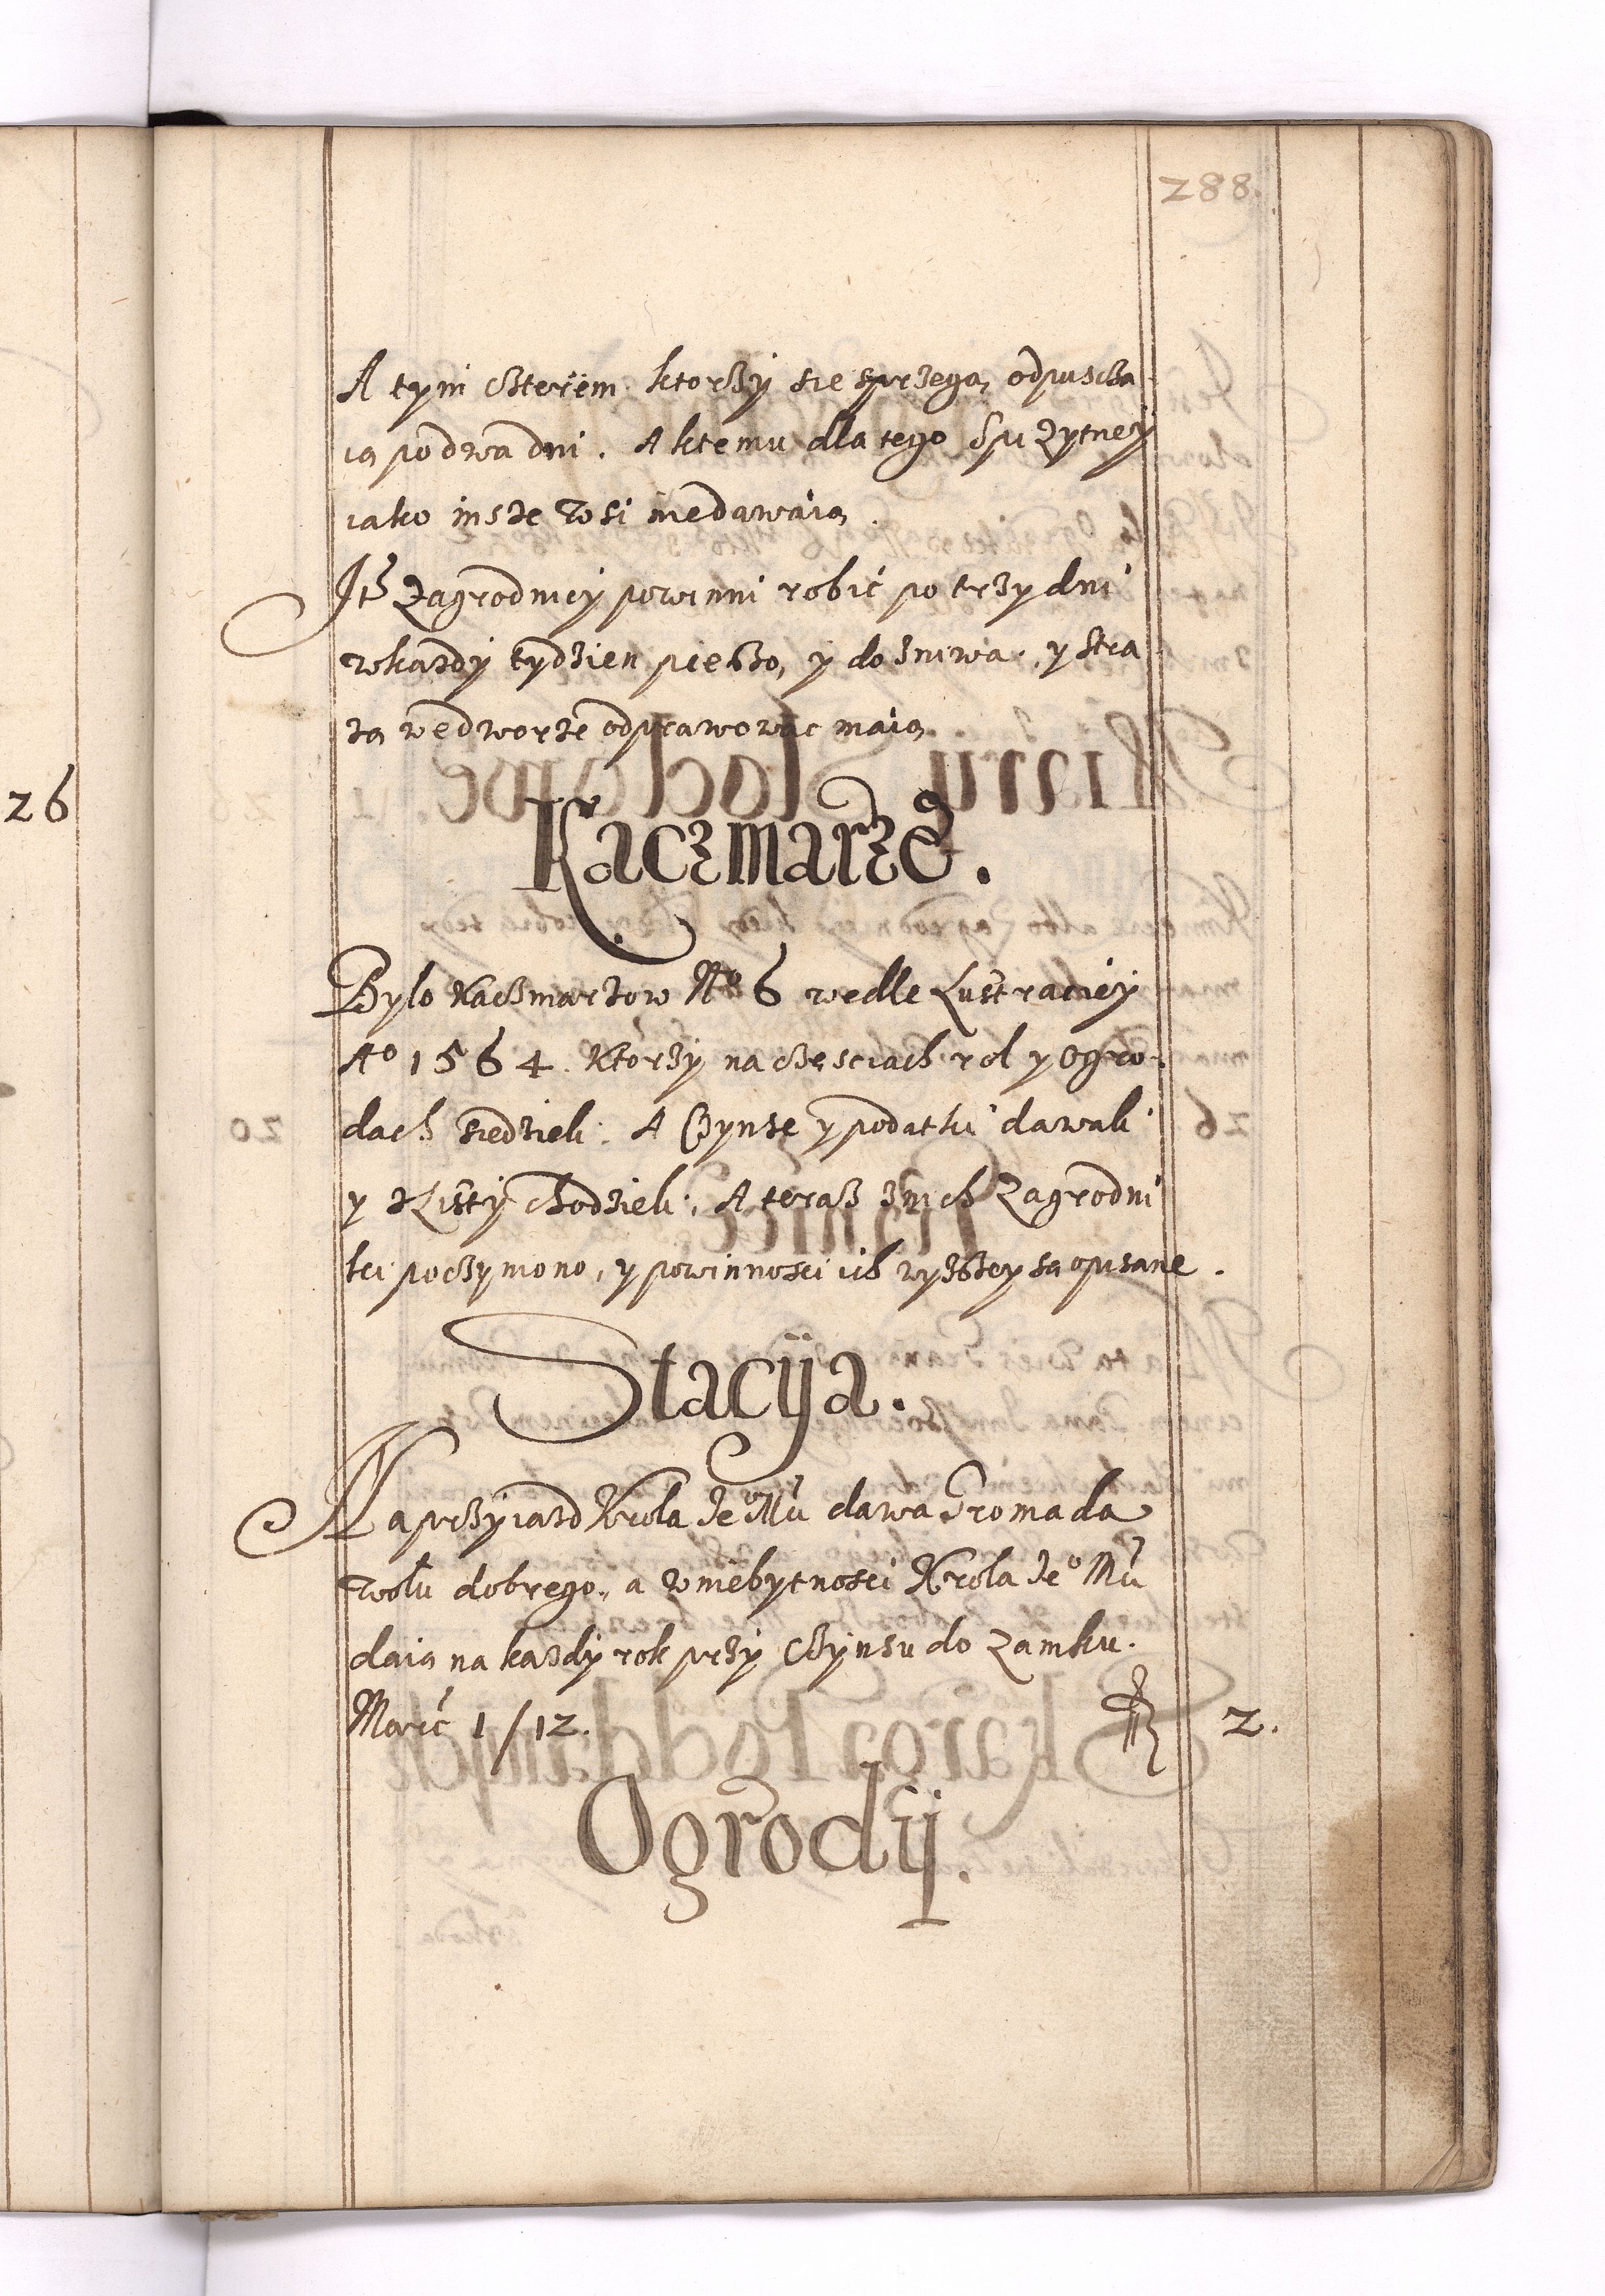 288.
A tym czterem ktorzy sie sprzegą, odpuscza
ią po dwa dni. A ktemu dla tego Spu Zytney
iako insze Wsi niedawaią.
Itẽ Zagrodnicy powinni robić po trzy dni
w kazdy tydzien pieszo, y do zniwa, y stra
zą wedworze odprawowac maią
Kaczmarze.
Bylo Kaczmarzow No 6 wedle Lustraciey
Ao 1564. Ktorzy na częsciach rol y Ogro
dach siedzieli. A Czynsze y podatki dawali
y z Listy chodzieli. A teraz znich Zagrodni
ki poczymono, y powinnosci ich wyższey są opisane.
Stacyja.
Na przyiazd Krola Je° Mci dawa Gromada
Wołu dobrego, a w niebytnosci Krola Je° Mci
daią na kazdy rok przy Czynszu do Zamku.
Marc 1/12. 2.
Ogrody.
26